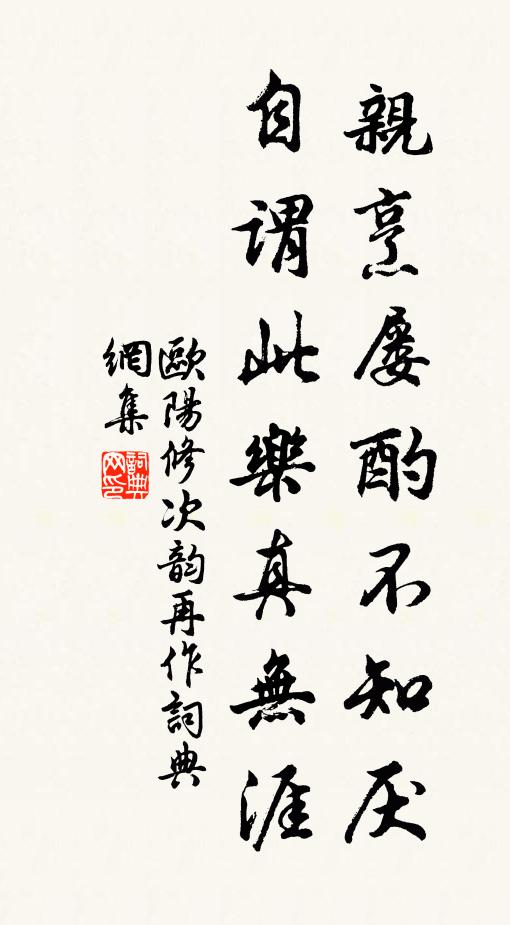 親烹屡酌不知厌
自謂此樂真無涯
歐陽修次韵再作詞典
網集
詞典网印